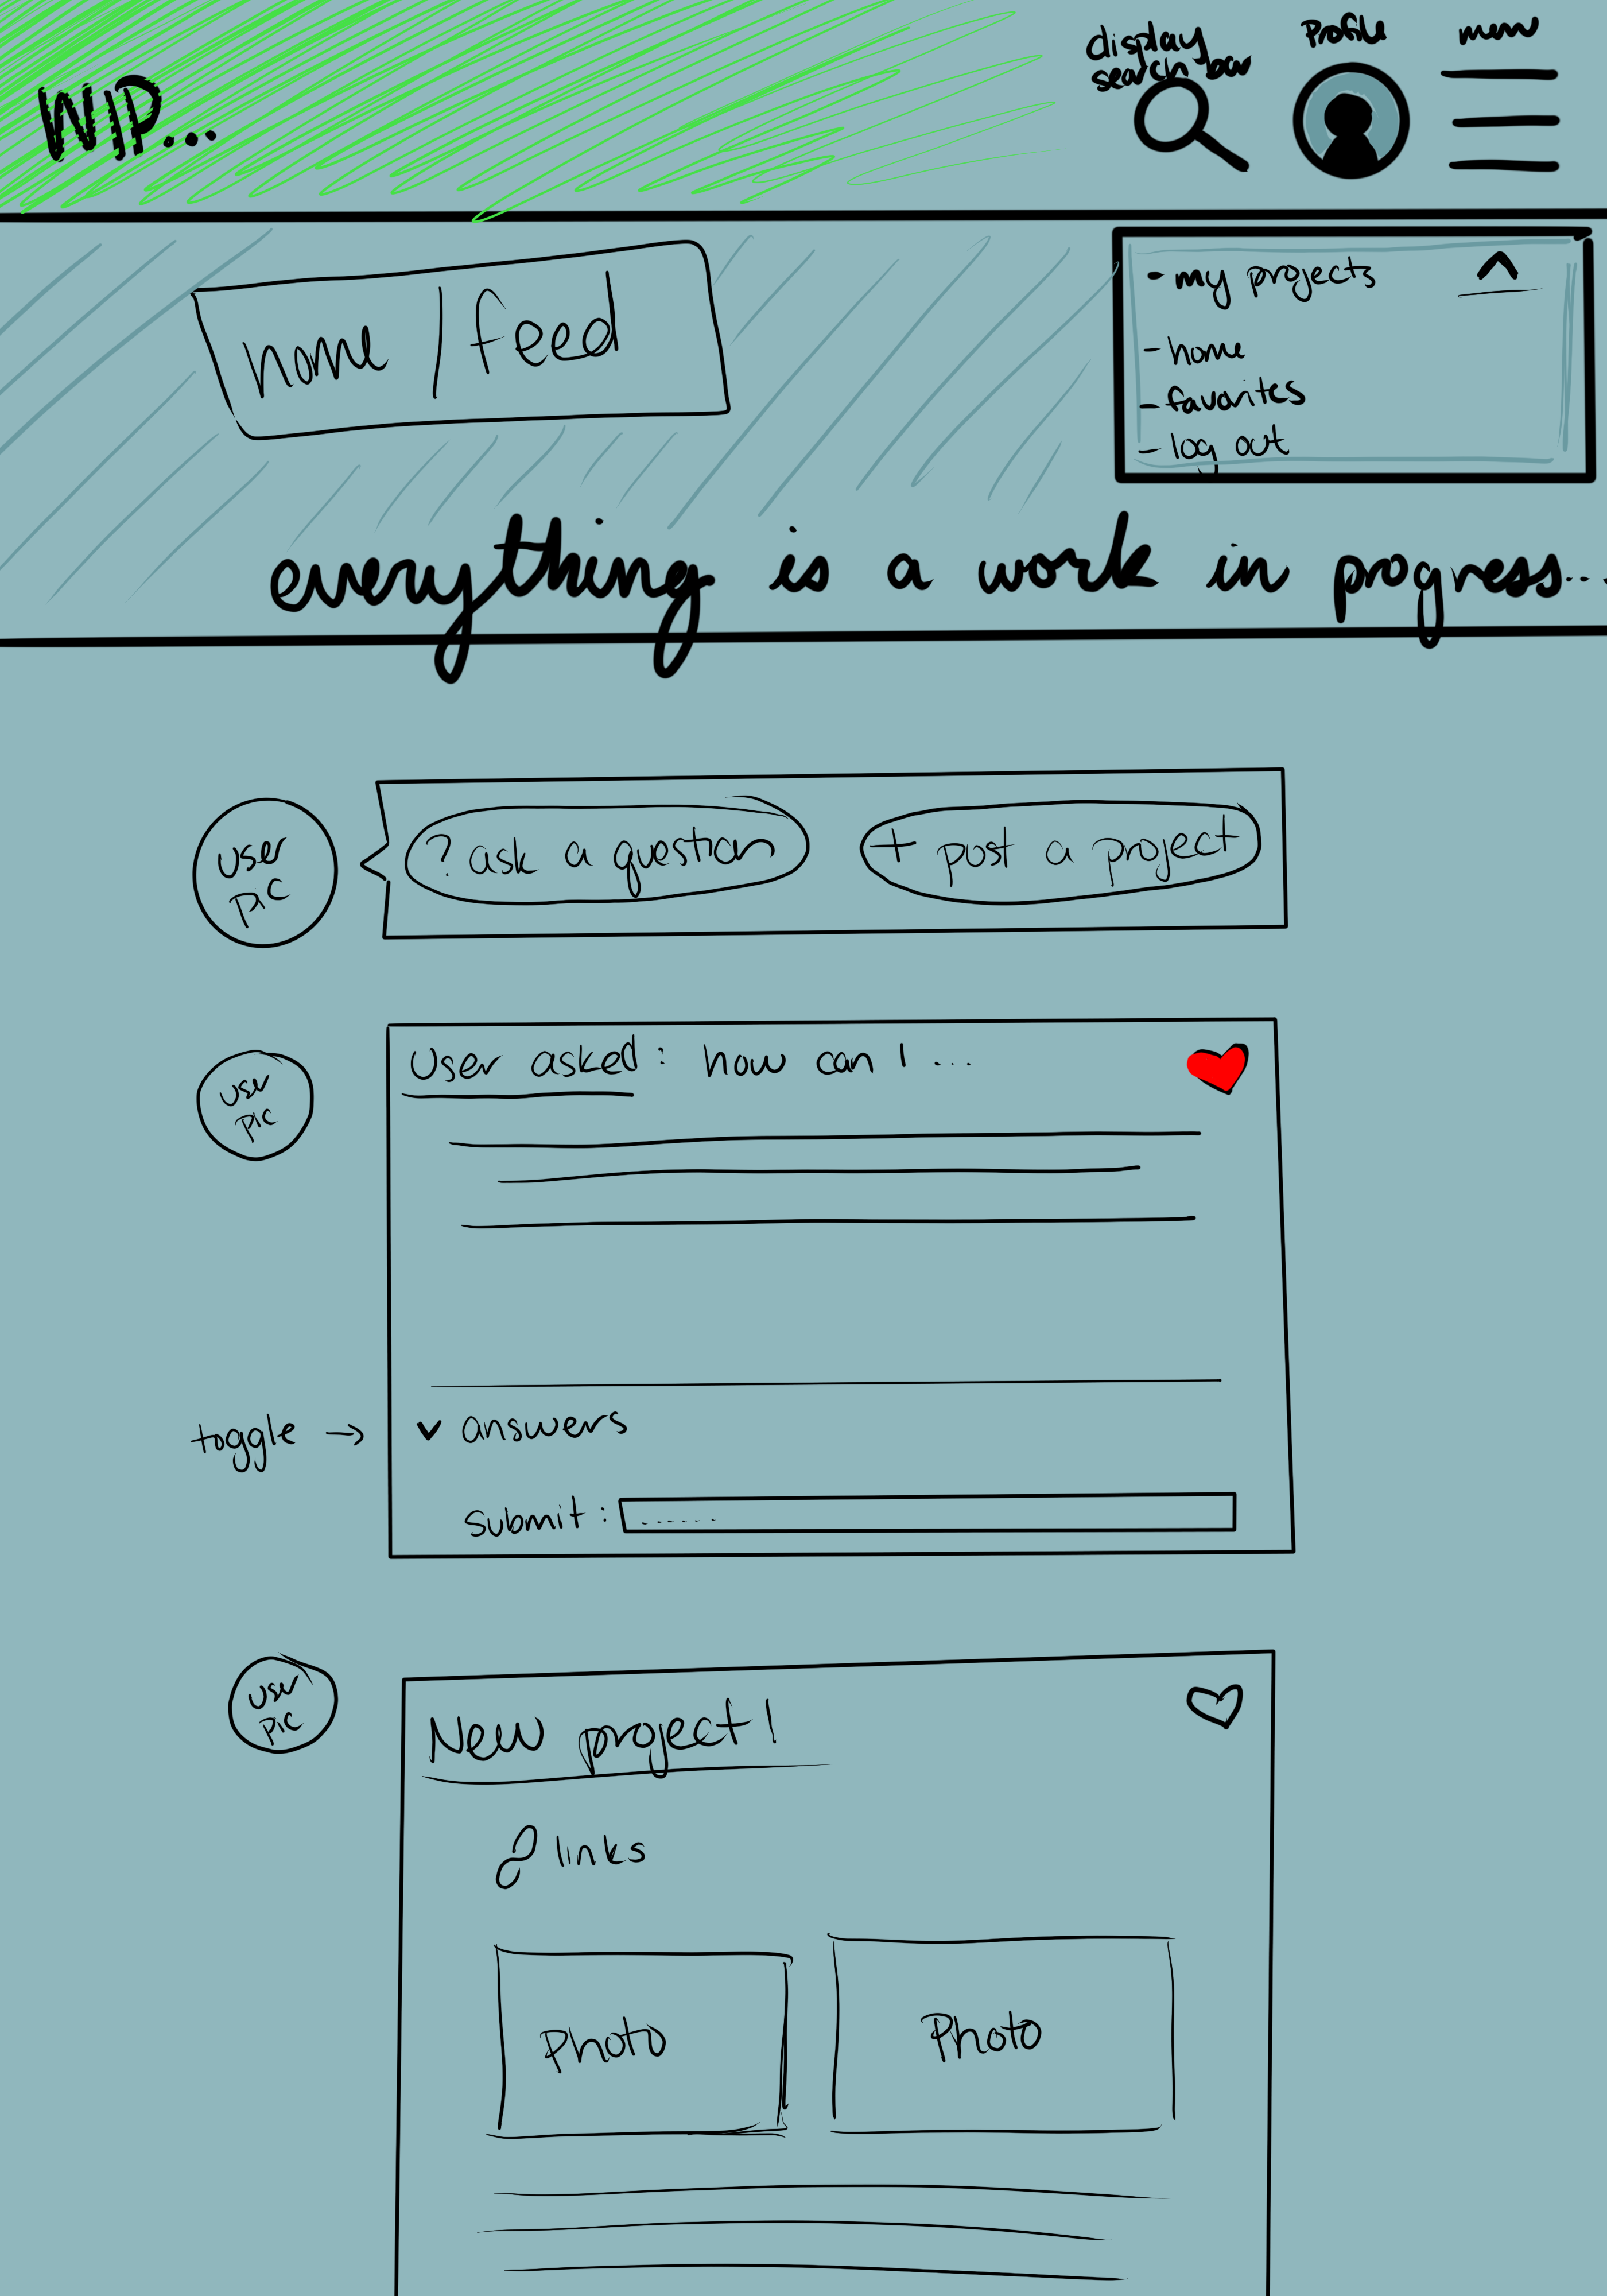 display
search bar
Profile
menu
WIP...
home / feed
- my projects
- home
- favorites
- log out
everything is a work in progress...
user
pic
? ask a question
+ post a project
user
pic
User asked: how can I ...
toggle →
answers
submit: ......
user
pic
New project!
links
Photo
Photo